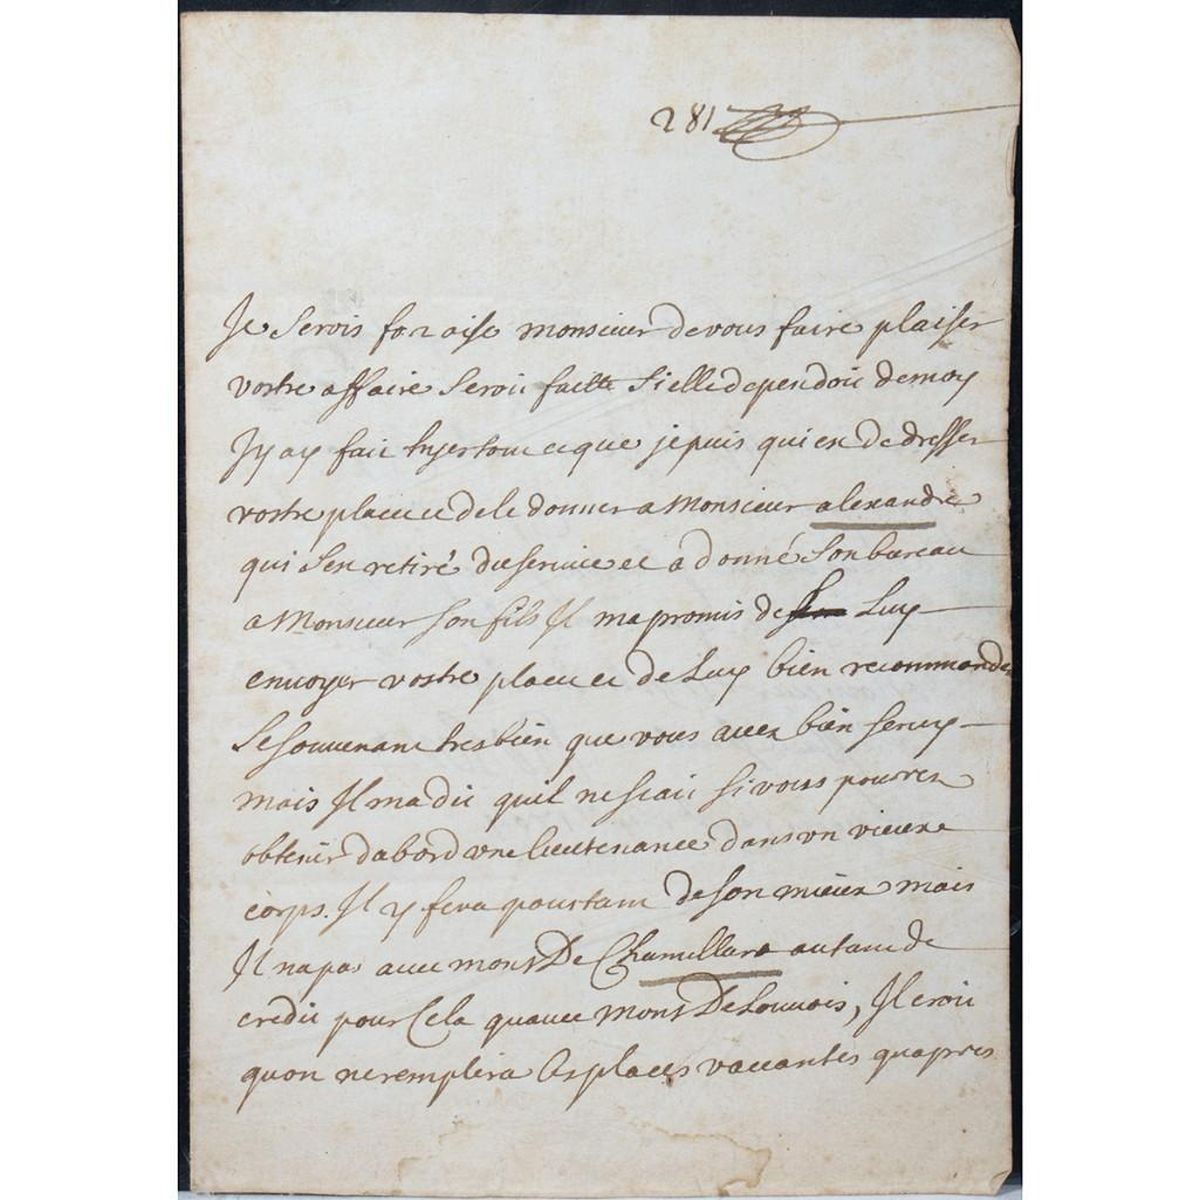 281
Je Serois for aise monsieur de vous faire plaiser
vostre affaire Seroit faitte Si elle dependoit de moy
Jy ay fait hyer tout ce que je puis qui est de dresser
vostre placet et de le donner a Monsieur alexandre
qui Sest retiré du service et a donné Son bureau
a Monsieur Son fils Il ma promis de Luy
envoyer vostre placet et de Luy bien recommander
Se souvenant tres bien que vous avez bien servy
mais Il ma dit quil ne scait si vous pourrez
obtenir dabord une lieutenance dans un vieux
corps. Il y fera pourtant de son mieux mais
Il na pas avec mons De Chamillard autant de
credit pour Cela quavec Mons De Louvois, Il croit
quon ne remplira les places vaccantes quapres